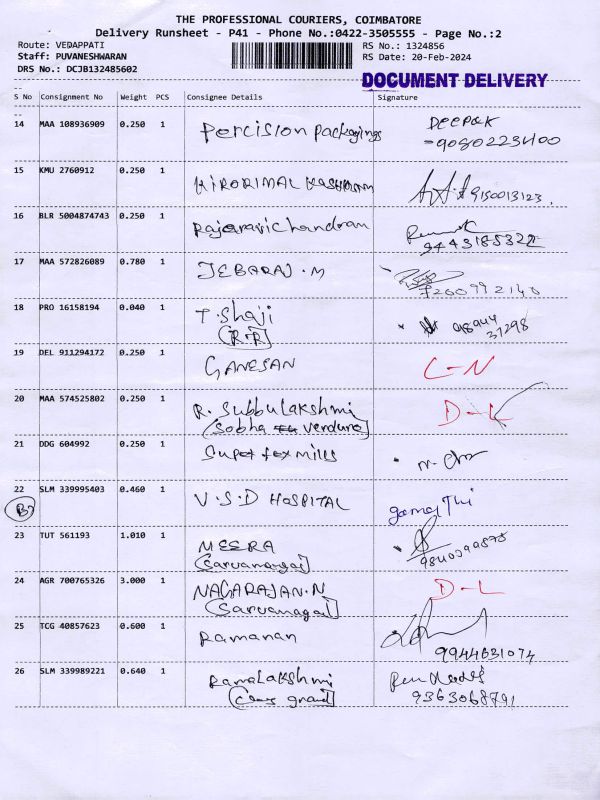 THE PROFESSIONAL COURIERS, COIMBATORE
Delivery Runsheet - P41 - Phone No.:0422-3505555 - Page No.:2
Route: VEDAPPATI
Staff: PUVANESHWARAN
DRS No.: DCJB132485602
RS No.: 1324856
RS Date: 20-Feb-2024
DOCUMENT DELIVERY
S No Consignment No Weight PCS Consignee Details Signature
14 MAA 108936909 0.250 1 Percision packagings DEEPAK
15 KMU 2760912 0.250 1 KIRORIMAL 9150013123
16 BLR 5004874743 0.250 1 Rajaravichandran
17 MAA 572826089 0.780 1 JEBARAJ.M
7200992140
18 PRO 16158194 0.040 1 T. Shaji
(R.R)
19 DEL 911294172 0.250 1 GANESAN L-N
20 MAA 574525802 0.250 1 R. Subbulakshmi D-L
(Sobha verdure)
21 DDG 604992 0.250 1 Super texmills
22 SLM 339995403 0.460 1 V.S.D HOSPITAL
23 TUT 561193 1.010 1 MEERA
24 AGR 700765326 3.000 1 NAGARAJAN.N D-L
25 TCG 40857623 0.600 1 Ramanan
9944631074
26 SLM 339989221 0.640 1 Ramalakshmi
9363068791